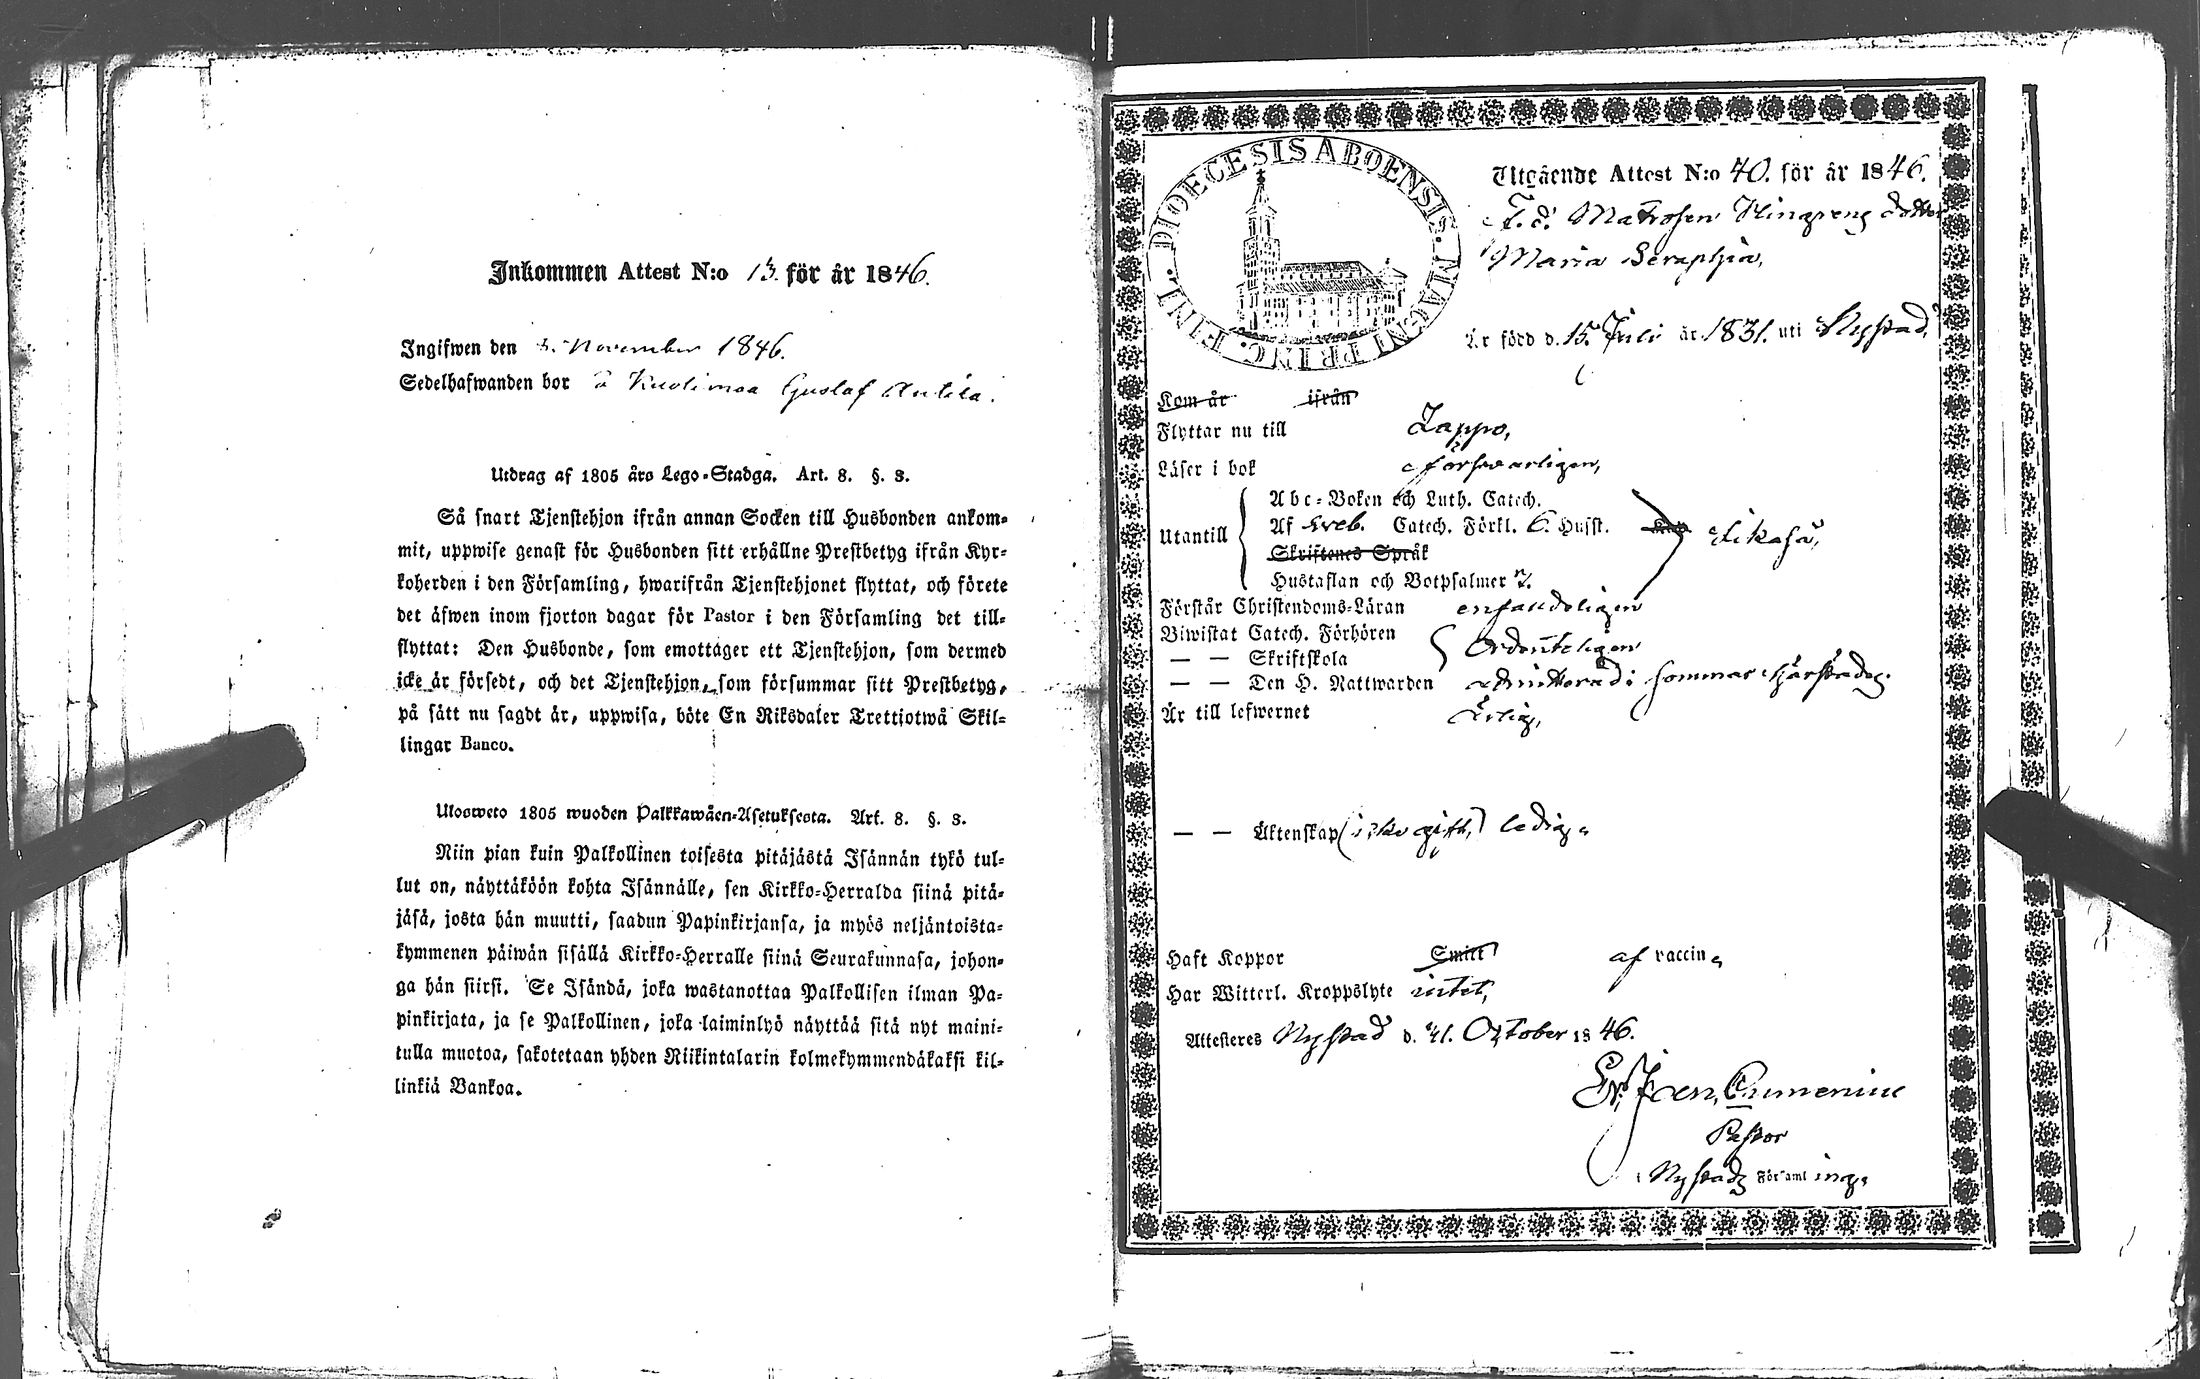 Inkommen Attest N:o 13. för år 1846.
Ingifwen den 5. November 1846.
Sedelhafwanden bor å Kuolimaa Gustaf Antila.
Utdrag af 1805 års Lego-Stadga. Art. 8. §. 3.
Så snart Tjenstehjon ifrån annan Socken till Husbonden ankom-
mit, uppwise genast för Husbonden sitt erhållne Prestbetyg ifrån Kyr-
koherden i den Församling, hwarifrån Tjenstehjonet flyttat, och förete
det äfwen inom fjorton dagar för Pastor i den Församling det till-
flyttat: Den Husbonde, som emottager ett Tjenstehjon, som dermed
icke är försedt, och det Tjenstehjon, som försummar sitt Prestbetyg,
på sätt nu sagdt är, uppwisa, böte En Riksdaler Trettiotwå Skil-
lingar Banco.
Ulosweto 1805 wuoden Palkkawäen-Asetuksesta. Art. 8. §. 3.
Niin pian kuin Palkollinen toisesta pitäjästä Isännän tykö tul-
lut on, näyttäköön kohta Isännälle, sen Kirkko-Herralda siinä pitä-
jäsä, josta hän muutti, saadun Papinkirjansa, ja myös neljäntoista-
kymmenen päiwän sisällä Kirkko-Herralle siinä Seurakunnasa, johon-
ga hän siirsi. Se Isändä, joka wastanottaa Palkollisen ilman Pa-
pinkirjata, ja se Palkollinen, joka laiminlyö näyttää sitä nyt maini-
tulla muotoa, sakotetaan yhden Riikintalarin kolmekymmendäkaksi kil-
linkiä Bankoa.
DIOECESIS ABOENSIS. MAGNI PRINC. FINL.
Utgående Attest N:o 40. för år 1846.
F. d. Matrosen dotter
Maria Seraphia,
Är född d. 15. Juli år 1831. uti Nystad,
Kom år ifrån
Flyttar nu till Lappo,
Läser i bok försvarligen,
Utantill
Abc-Boken och Luth. Catech.
Af Sveb. Catech. Förkl. 6. Husst.
Skriftenes Språk
Hustaflan och Botpsalmer
likaså,
Förstår Christendoms-Läran enfaldeligen
Biwistat Catech. Förhören
— — Skriftskola
Ordenteligen
— — Den H. Nattwarden admitterad i sommar
Är till lefwernet Ärlig,
— — Äktenskap (icke gift,) ledig.
Haft Koppor Smitt af vaccin
Har Witterl. Kroppslyte intet,
Attesteres Nystad d. 21. October 1846.
Pastor
i Nystads Församling.